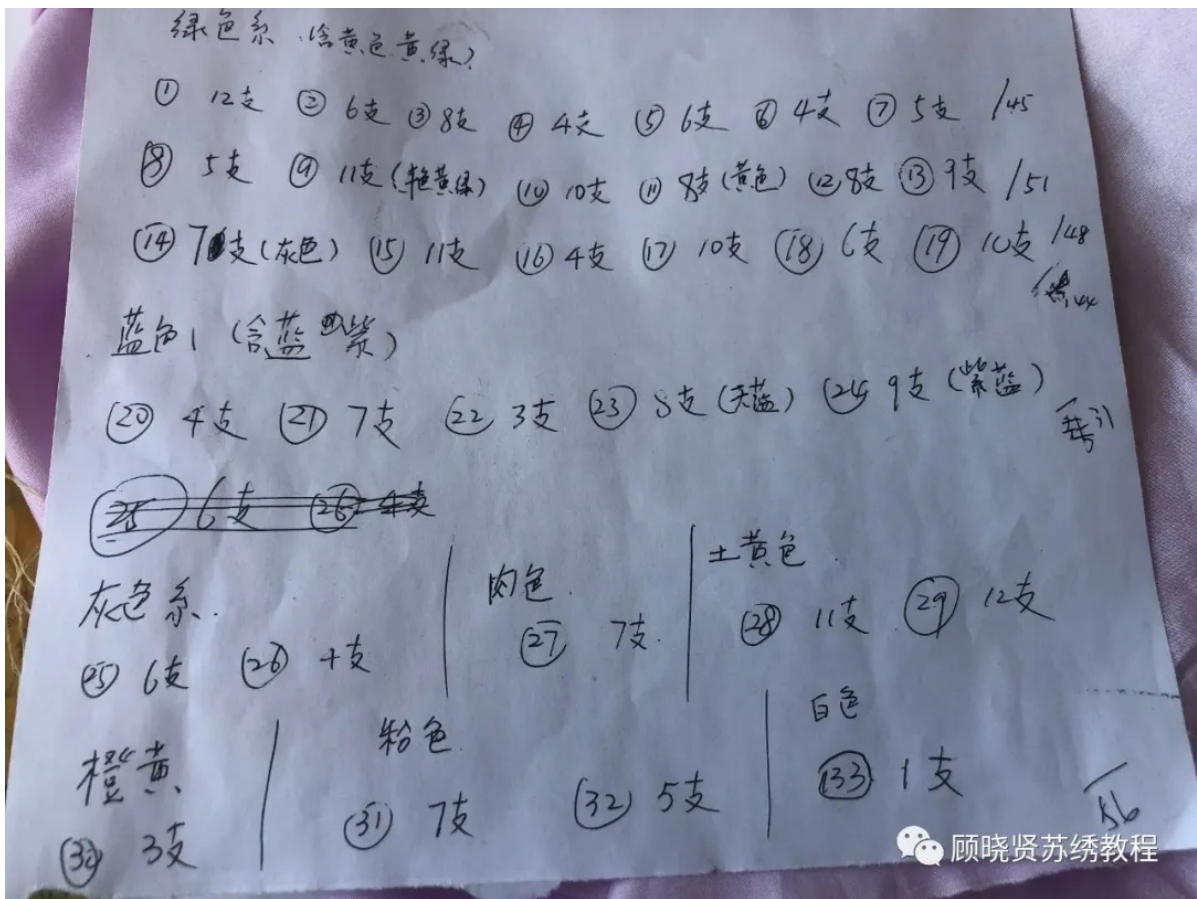 绿色系（含黄色黄绿）
① 12支 ② 6支 ③ 8支 ④ 4支 ⑤ 6支 ⑥ 4支 ⑦ 5支 /45
⑧ 5支 ⑨ 11支(艳黄绿) ⑩ 10支 ⑪ 8支(黄色) ⑫ 8支 ⑬ 9支 /51
⑭ 7支(灰色) ⑮ 11支 ⑯ 4支 ⑰ 10支 ⑱ 6支 ⑲ 10支 /48
蓝色1（含蓝紫）
⑳ 4支 ㉑ 7支 ㉒ 3支 ㉓ 8支(天蓝) ㉔ 9支(紫蓝)
31
㉕ 6支 ㉖ 4支
灰色系.
㉕ 6支 ㉖ 4支
肉色.
㉗ 7支.
土黄色.
㉘ 11支 ㉙ 12支
橙黄
㉚ 3支
粉色.
㉛ 7支 ㉜ 5支
白色
㉝ 1支
56
顾晓贤苏绣教程